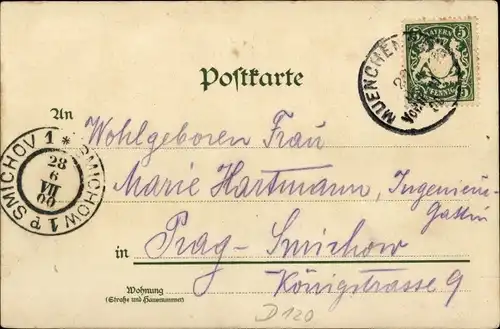 BAYERN
5 5
PFENNIG
MUENCHEN
Postkarte
An
Wohlgeboren Frau
Marie Hartmann, Ingenieurs-
Gattin
in Prag-Smichow
Königstrasse 9
Wohnung
(Straße und Hausnummer)
SMICHOV 1 * SMICHOW 1
28
6
VII
00
D 120